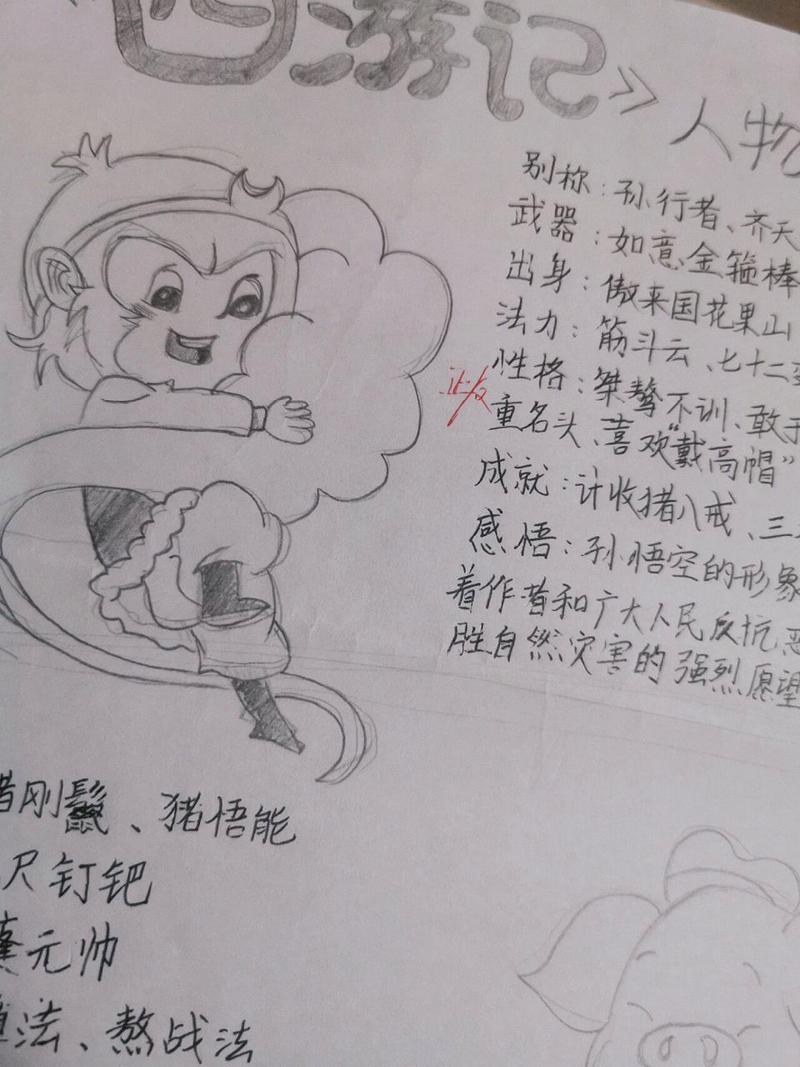 西游记》人物
别称：孙行者、齐天
武器：如意金箍棒
出身：傲来国花果山
法力：筋斗云、七十二变
性格：桀骜不训、敢于
重名头、喜欢“戴高帽”
成就：计收猪八戒、三
感悟：孙悟空的形象
着作者和广大人民反抗恶
胜自然灾害的强烈愿望
猪刚鬣、猪悟能
尺钉钯
蓬元帅
法、熬战法